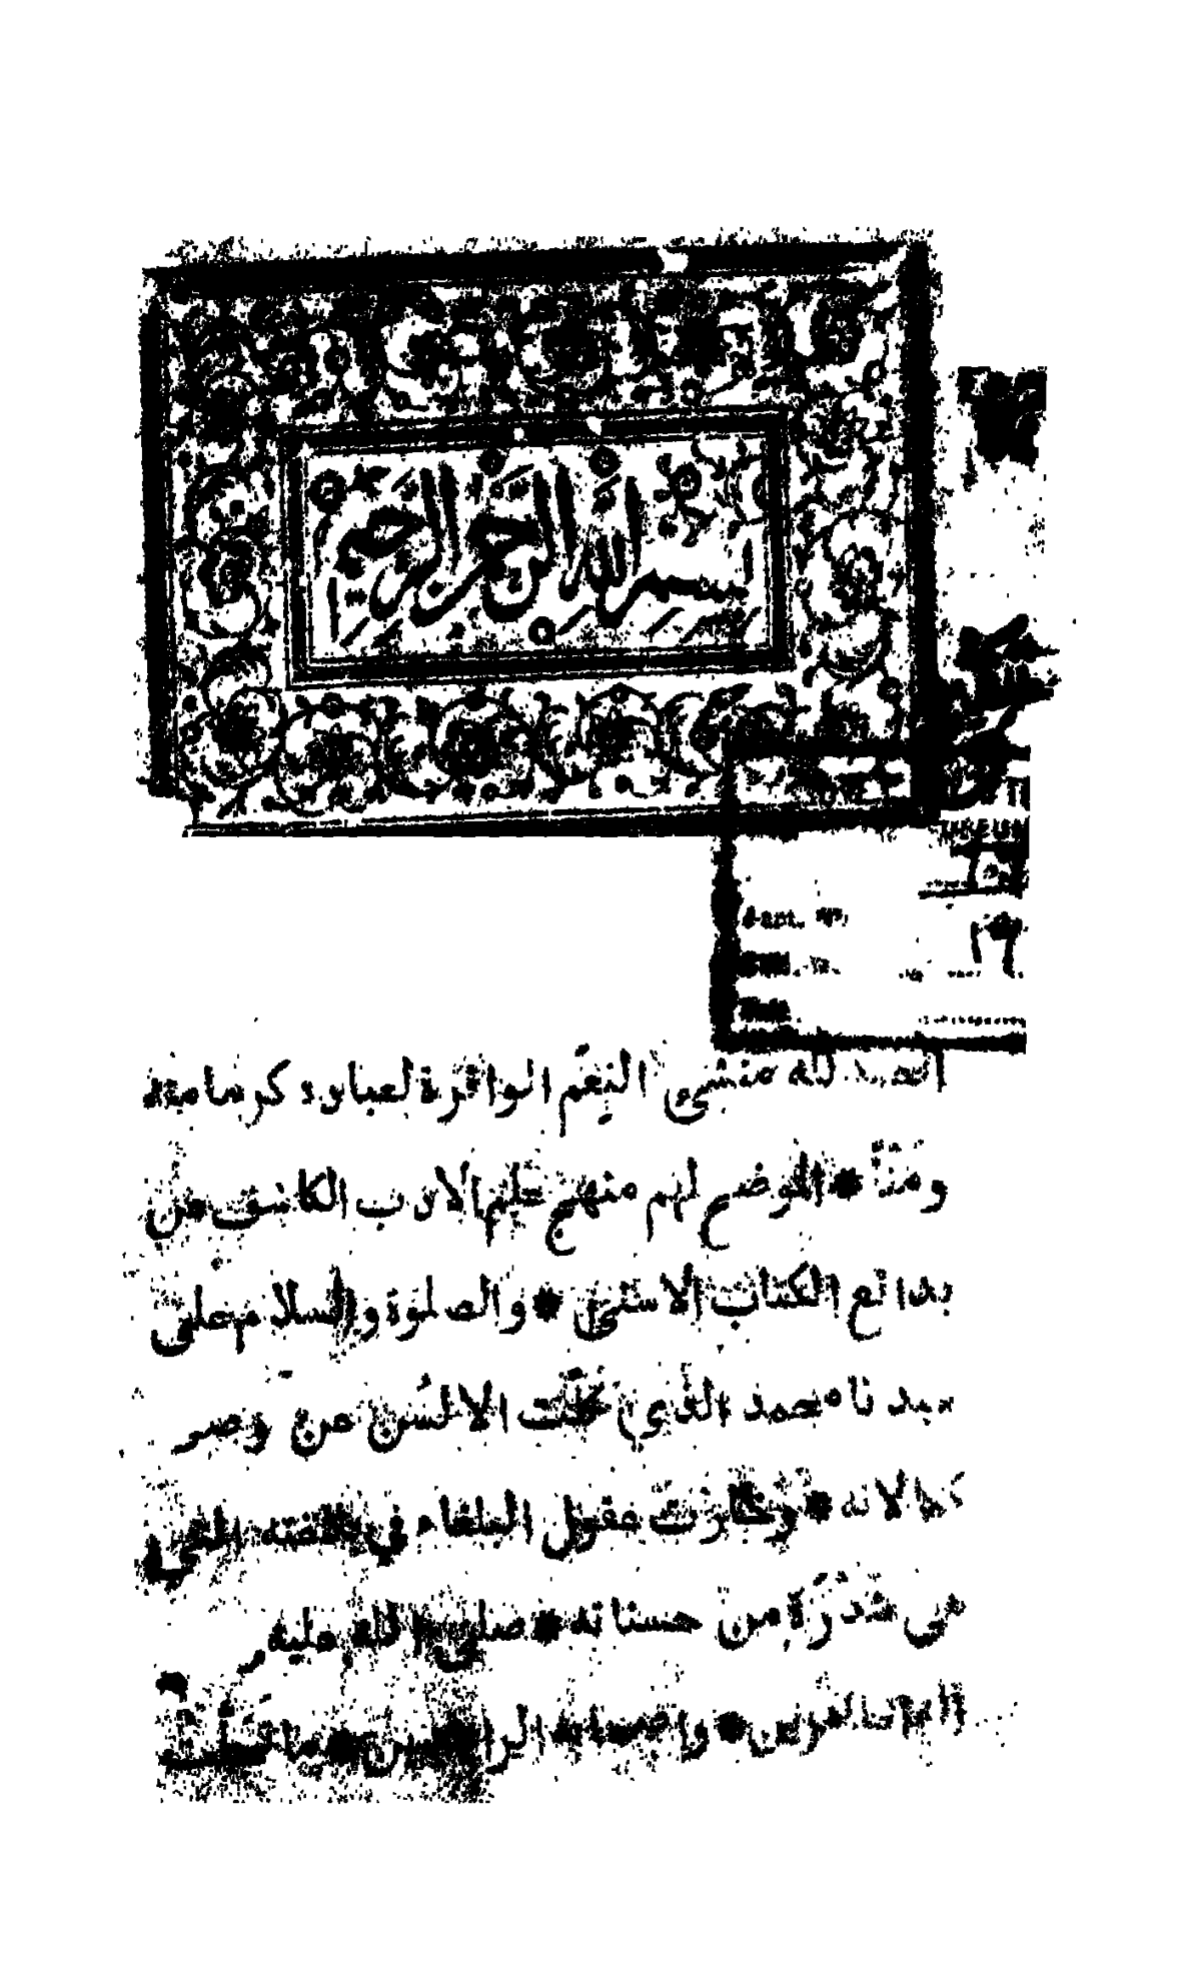 بسم الله الرحمن الرحيم
الحمد لله منشئ النعم الوافرة لعباده كرما منه
ومنّا * الموضح لهم منهج علم الادب الكاشف عن
بدائع الكتاب الاسنى * والصلوة والسلام على
سيدنا محمد الذي كلّت الالسُن عن حصر
كمالاته * وحارت عقول البلغاء في بلاغته التي
هي شذرة من حسناته * صلى الله عليه و
اله * واصحابه * ما